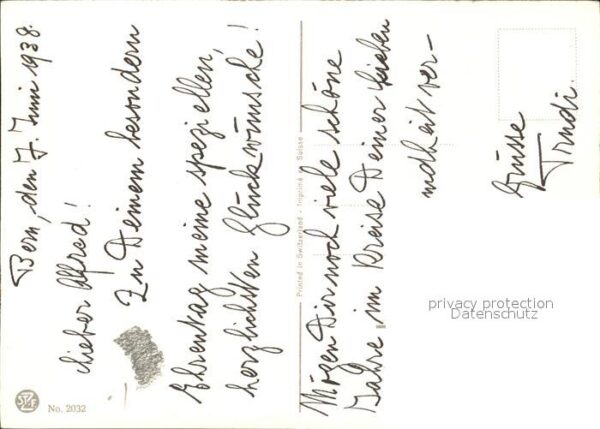 Bern, den 7. Juni 1938.
Lieber Alfred!
Zu Deinem besondern
Ehrentag meine speziellen,
herzlichsten Glückwünsche!
Mögen Dir noch viele schöne
Jahre im Kreise Deiner Lieben
ndheit ver-
Grüsse
Trudi.
Printed in Switzerland - Imprimé en Suisse
No. 2032
privacy protection
Datenschutz